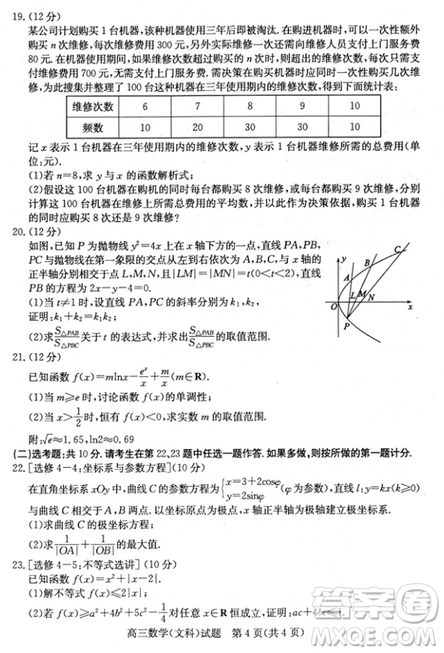 19.(12分)
某公司计划购买1台机器,该种机器使用三年后即被淘汰.在购进机器时,可以一次性额外
购买n次维修,每次维修费用300元,另外实际维修一次还需向维修人员支付上门服务费
80元.在机器使用期内,如果维修次数超过购买的n次时,则超出的维修次数,每次只需支
付维修费用700元,无需支付上门服务费.需决策在购买机器时应同时一次性购买几次维
修,为此搜集并整理了100台这种机器在三年使用期内的维修次数,得到下面统计表:
维修次数 6 7 8 9 10
频数 10 20 30 30 10
记x表示1台机器在三年使用期内的维修次数,y表示1台机器维修所需的总费用(单
位:元).
(1)若n=8,求y与x的函数解析式;
(2)假设这100台机器在购机的同时每台都购买8次维修,或每台都购买9次维修,分别计
算这100台机器在维修上所需总费用的平均数,以此作为决策依据,购买1台机器的
同时应购买8次还是9次维修?
20.(12分)
如图,已知P为抛物线y²=4x上在x轴下方的一点,直线PA,PB,
PC与抛物线在第一象限的交点从左到右依次为A,B,C,与x轴的
正半轴分别相交于点L,M,N且|LM|=|MN|=t(0<t<2),直线PB
的方程为2x-y-4=0.
(1)当t≠1时,设直线PA,PC的斜率分别为k₁,k₂,
证明:k₁+k₂=k₁k₂;
(2)求S△PAB/S△PBC关于t的表达式,并求出S△PAB/S△PBC的取值范围.
y
C
B
A
O
L
M
N
x
P
21.(12分)
已知函数f(x)=mlnx-eˣ/x+m/x(m∈R).
(1)当m≥e时,讨论函数f(x)的单调性;
(2)当x>1/2时,恒有f(x)<0成立,求实数m的取值范围.
附:√e≈1.65,ln2≈0.69
(二)选考题:共10分.请考生在第22,23题中任选一题作答.如果多做,则按所做的第一题计分.
22.[选修4-4:坐标系与参数方程](10分)
在直角坐标系xOy中,曲线C的参数方程为{x=3+2cosφ y=2sinφ (φ为参数),直线l:y=kx(k∈R)与曲线
C相交于A,B两点.以坐标原点为极点,x轴正半轴为极轴建立极坐标系.
(1)求曲线C的极坐标方程;
(2)求1/|OA|+1/|OB|的最大值.
23.[选修4-5:不等式选讲](10分)
已知函数f(x)=x²+|x-2|.
(1)解不等式f(x)>2|x|;
(2)若f(x)≥a²+4b²+5c²-1/4对任意x∈R恒成立,证明:ac+4bc≤1.
高三数学(文科)试题 第4页(共4页)